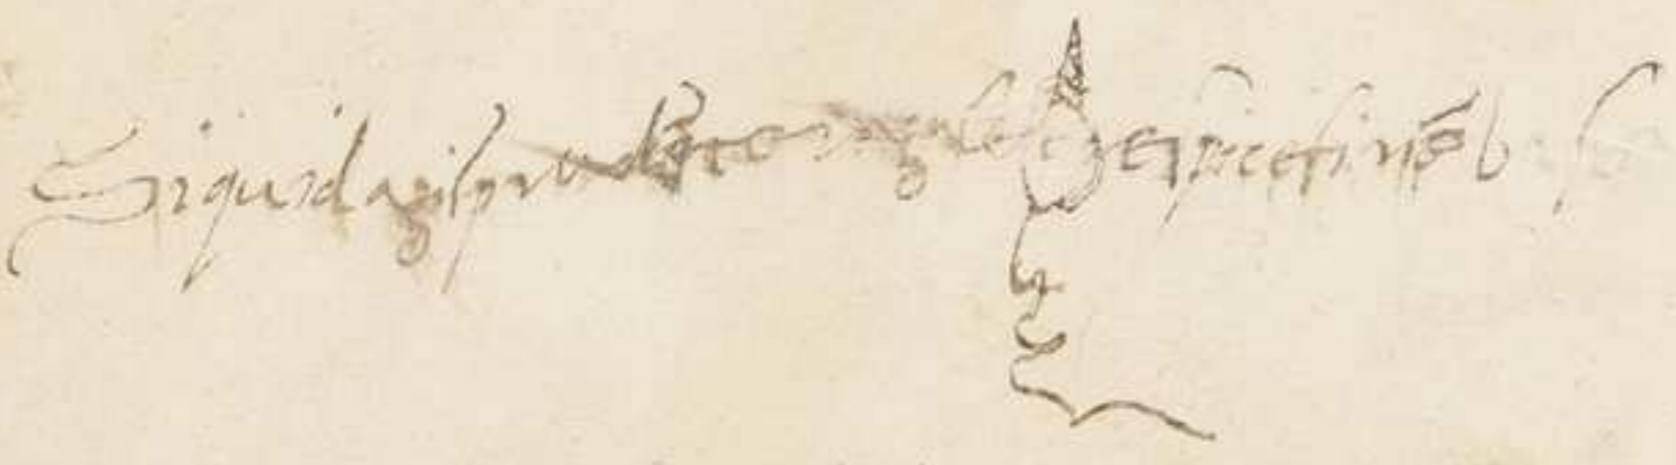 Siquid agis prudẽter agas et respice finẽ